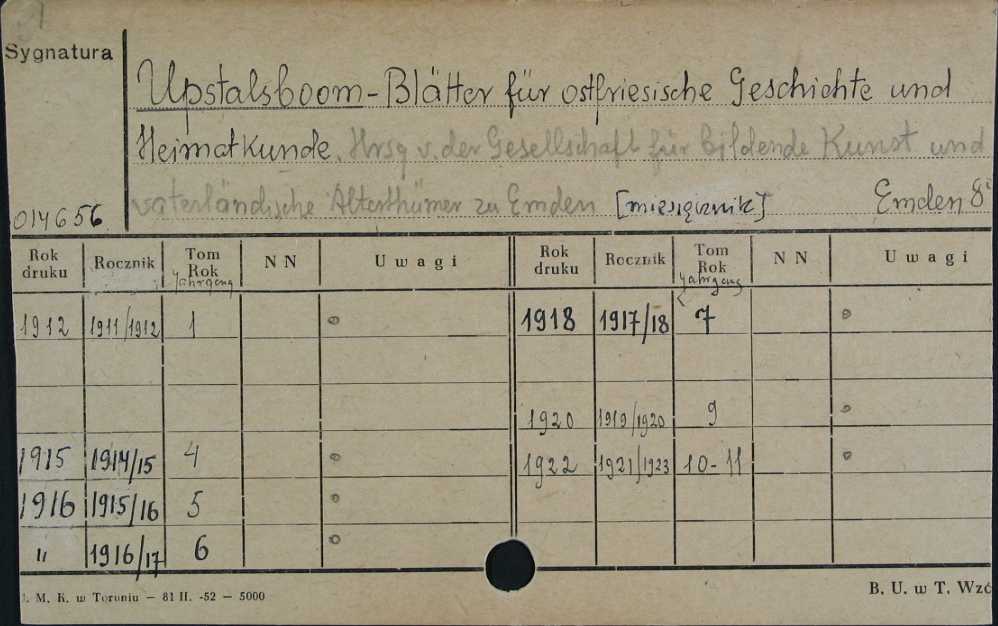 Sygnatura
Upstalsboom-Blätter für ostfriesische Geschichte und
Heimatkunde. Hrsg v. der Gesellschaft für bildende Kunst und
vaterländische Alterthümer zu Emden [miesięcznik] Emden 8°
014656
Rok druku Rocznik Tom Rok Jahrgang NN Uwagi Rok druku Rocznik Tom Rok Jahrgang NN Uwagi
1912 1911/1912 1 1918 1917/18 7
1920 1919/1920 9
1915 1914/15 4 1922 1921/1923 10-11
1916 1915/16 5
" 1916/17 6
. M. K. w Toruniu — 81 II. -52 — 5000
B. U. w T. Wzć